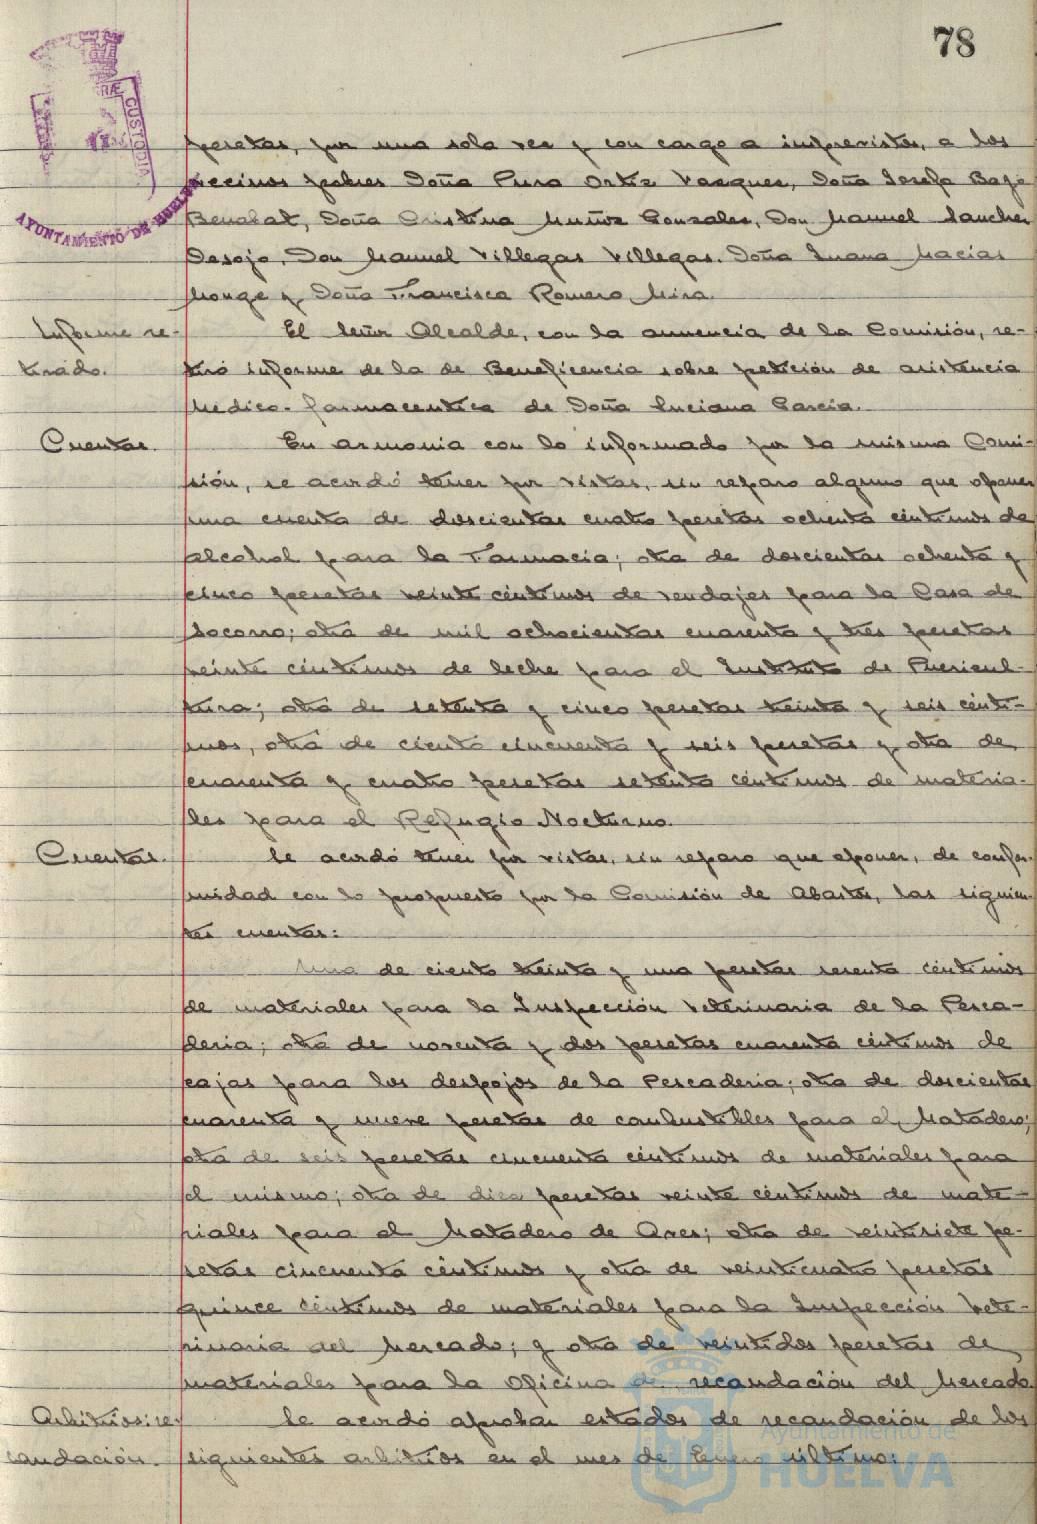 78
RÆ CUSTODIA
AYUNTAMIENTO DE HUELVA
pesetas, por una sola vez y con cargo a imprevistos, a los
vecinos pobres Doña Pura Ortiz Vazquez, Doña Josefa Baja
Benabat, Doña Cristina Muñoz Gonzalez, Don Manuel Sanchez
Desojo, Don Manuel Villegas Villegas, Doña Juana Macias
Monge y Doña Francisca Romero Mira.
Informe re-
tirado.
El Señor Alcalde, con la anuencia de la Comisión, re-
tiró informe de la de Beneficencia sobre petición de asistencia
Medico-farmaceutica de Doña Luciana Garcia.
Cuentas.
En armonia con lo informado por la misma Comi-
sión, se acordó tener por vistas, sin reparo alguno que oponer
una cuenta de doscientas cuatro pesetas ochenta céntimos de
alcohol para la Farmacia; otra de doscientas ochenta y
cinco pesetas veinte céntimos de vendajes para la Casa de
Socorro; otra de mil ochocientas cuarenta y tres pesetas
veinte céntimos de leche para el Instituto de Puericul-
tura; otra de setenta y cinco pesetas treinta y seis cénti-
mos, otra de ciento cincuenta y seis pesetas y otra de
cuarenta y cuatro pesetas setenta céntimos de materia-
les para el Refugio Nocturno.
Cuentas.
Se acordó tener por vistas, sin reparo que oponer, de confor-
midad con lo propuesto por la Comisión de Abastos, las siguien-
tes cuentas:
Una de ciento treinta y una pesetas sesenta céntimos
de materiales para la Inspección Veterinaria de la Pesca-
deria; otra de noventa y dos pesetas cuarenta céntimos de
cajas para los despojos de la Pescaderia; otra de doscientas
cuarenta y nueve pesetas de combustibles para el Matadero;
otra de seis pesetas cincuenta céntimos de materiales para
el mismo; otra de diez pesetas veinte céntimos de mate-
riales para el Matadero de Aves; otra de veintisiete pe-
setas cincuenta céntimos y otra de veinticuatro pesetas
quince céntimos de materiales para la Inspección Vete-
rinaria del Mercado; y otra de veintidos pesetas de
materiales para la Oficina de recaudación del Mercado.
Arbitrios: re-
caudación.
Se acordó aprobar estados de recaudación de los
siguientes arbitrios en el mes de Enero último:
Ayuntamiento de
HUELVA